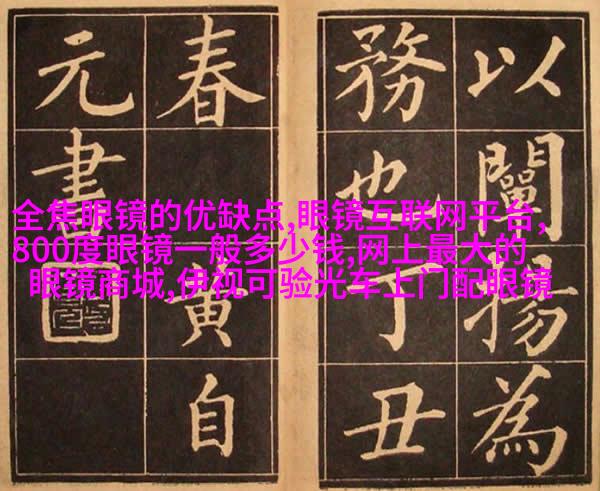 以闡揚為
務也丁丑
春寅自
元書
全焦眼镜的优缺点,眼镜互联网平台,
800度眼镜一般多少钱,网上最大的
眼镜商城,伊视可验光车上门配眼镜